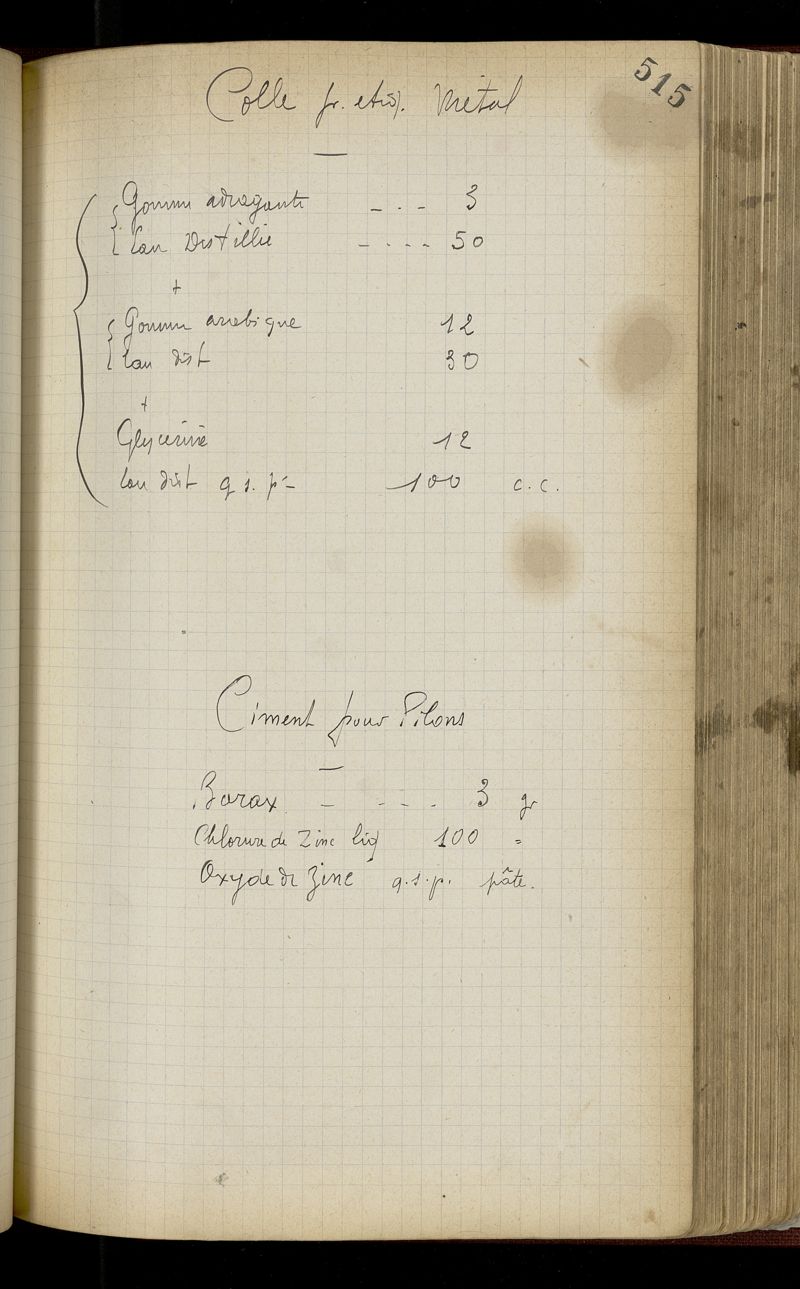 515
Colle pr. etiq. Métal
Gomme adragante - . - 3
Eau Distillée - . . - 50
+
Gomme arabique 12
Eau dist 30
+
Glycérine 12
Eau dist q s. pr 100 c.c.
Ciment pour Pilons
Borax - - - . 3 gr
Chlorure de Zinc liq 100 =
Oxyde de Zinc q.s.p. pâte.